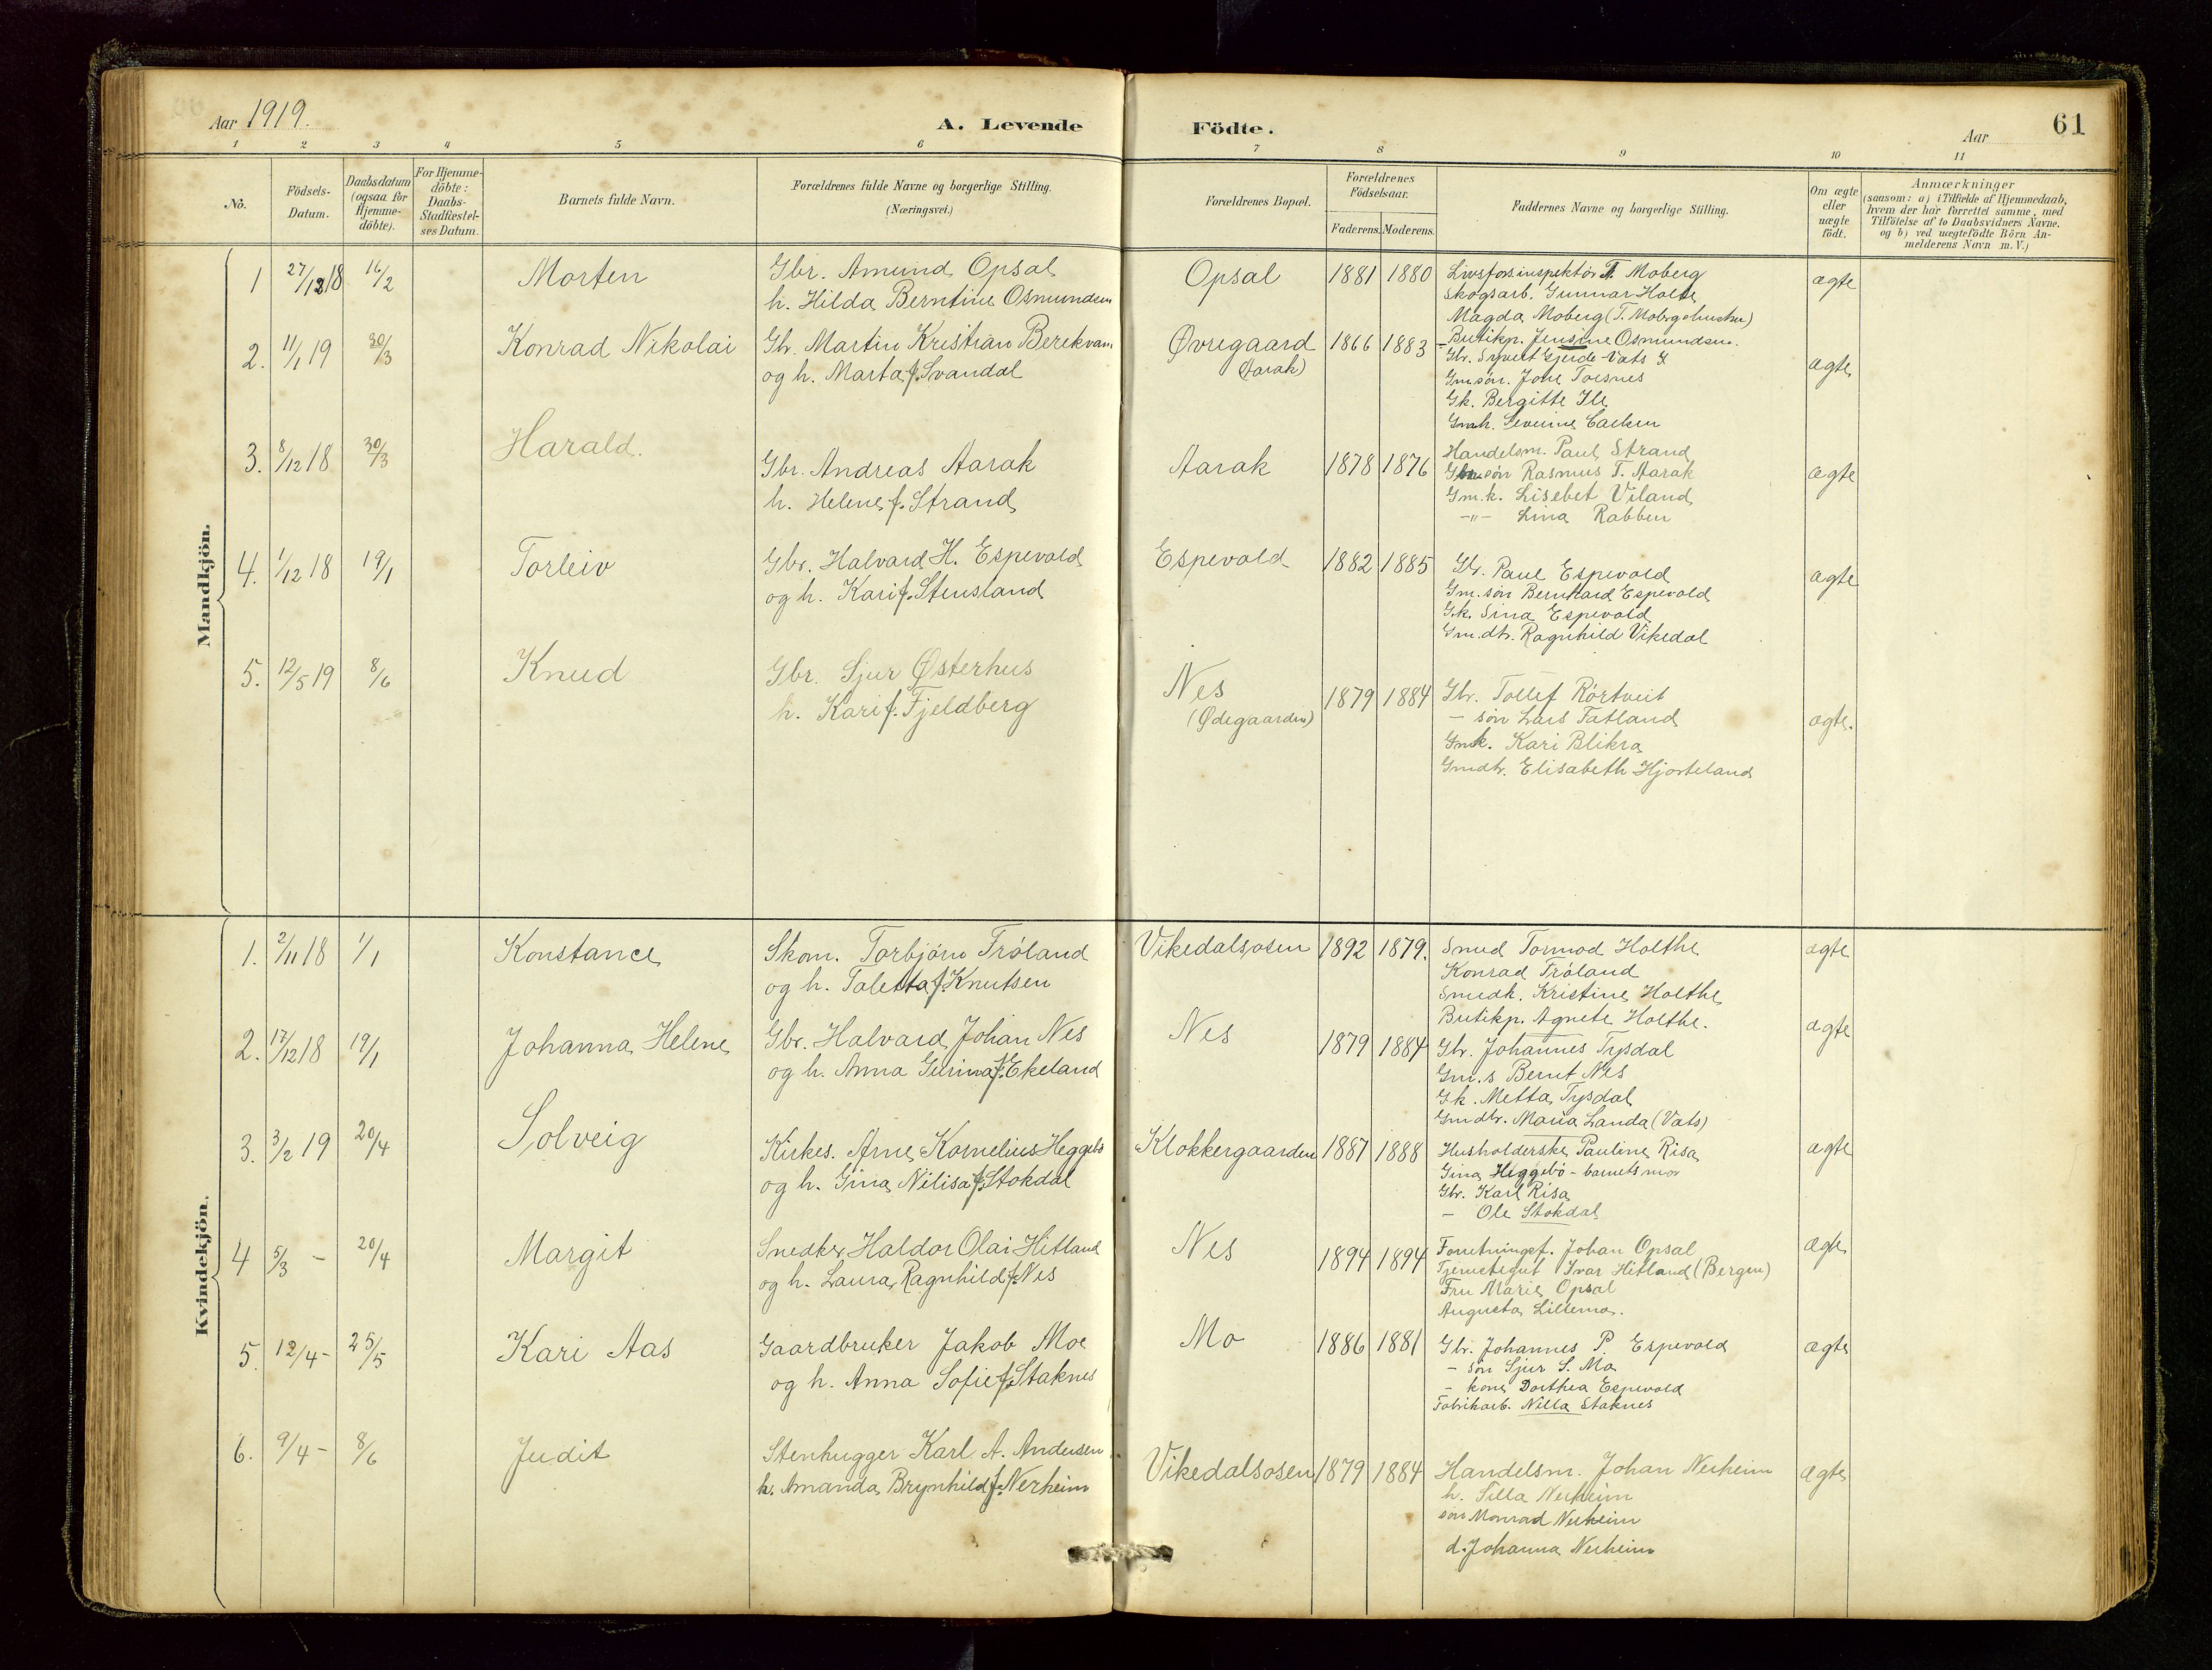 Aar 1919.
A. Levende Födte.
Aar
61
1 2 3 4 5 6 7 8 9 10 11
No.
Födsels-Datum.
Daabsdatum (ogsaa for Hjemme-döbte).
For Hjemme-döbte: Daabs-Stadfæstel-ses Datum.
Barnets fulde Navn.
Forældrenes fulde Navne og borgerlige Stilling.
(Næringsvei.)
Forældrenes Bopæl.
Forældrenes Födselsaar.
Faderens. Moderens.
Faddernes Navne og borgerlige Stilling.
Om ægte eller uægte födt.
Anmærkninger
(saasom: a) i Tilfælde af Hjemmedaab,
hvem der har forrettet samme, med
Tilföielse af to Daabsvidners Navne,
og b) ved uægtefödte Börn An-
melderens Navn m. V.)
Mandkjön.
1 27/12 18 16/2 Morten
Gbr. Amund Opsal
h. Hilda Berntine Osmundsen
Opsal 1881 1880
Livsfors.inspektör T. Moberg
Skogsarb. Gunnar Holte
Magda Moberg (T. Mobergs hustru)
Butikp. Jensine Osmundsen.
ægte
2. 11/1 19 30/3 Konrad Nikolai
Gbr. Martin Kristian Berekvam
og h. Marta f. Svandal
Øvregaard
(Aarak)
1866 1883
Gbr. Syvert Gjerde Vats
Gm.søn. Jone Toesnes
Gk. Bergitte Ile
Gmh. Severine
ægte
3. 8/12 18 30/3 Harald.
Gbr. Andreas Aarak
h. Helene f. Strand
Aarak 1878 1876
Handelsm. Paul Strand
Gbr.søn Rasmus T. Aarak
Gm.k. Lisebet Viland
-"- Lina Rabben
ægte
4. 1/12 18 19/1 Torleiv
Gbr. Halvard H. Espevold
og h. Kari f. Stensland
Espevold 1882 1885
Gbr. Paul Espevold
Gm.søn Bernhard Espevold
G.k. Sina Espevold
Gm.dtr. Ragnhild Vikedal
ægte
5. 12/5 19 8/6 Knud
Gbr. Sjur Østerhus
h. Kari f. Fjeldberg
Nes
(Ødegaarden)
1879 1884
Gbr. Tollef Rörtveit
- søn Lars Tatland
Gmk. Kari Blikra
Gmdtr. Elisabeth Hjorteland
ægte.
Kvindekjön.
1. 2/11 18 1/1 Konstance
Skom. Torbjörn Tröland
og h. Taletta f. Knutsen
Vikedalsosen 1892 1879.
Smed Tormod Holthe
Konrad Tröland
Smedk. Kristine Holthe
Butikp. Agnete Holthe.
ægte
2. 17/12 18 19/1 Johanna Helene
Gbr. Halvard Johan Nes
og h. Anna Gurina f. Ekeland
Nes 1879 1884
Gbr. Johannes Tysdal
Gm.s Bernt Nes
Gk. Metta Tysdal
Gmdtr. Maria Landa (Vats)
ægte
3. 3/2 19 20/4 Solveig
Kirkes. Arne Kornelius Heggebö
og h. Gina Nilisa f. Stokdal
Klokkergaarden 1887 1888
Husholderske Pauline Risa
Gina Heggebö - barnets mor
Gbr. Karl Risa
- Ole Stokdal
ægte
4 5/3 - 20/4 Margit
Snedker Haldor Olai Hitland
og h. Laura Ragnhild f. Nes
Nes 1894 1894
Forretningsf. Johan Opsal
Tjenestegut Ivar Hitland (Bergen)
Fru Marie Opsal
Augusta Lillemo.
ægte
5. 12/4 - 25/5 Kari Aas
Gaardbruker Jakob Moe
og h. Anna Sofie f. Staknes
Mo 1886 1881
Gbr. Johannes P. Espevold
- søn Sjur S. Mo
- kone Dorthea Espevold
Fabrikarb. Nilla Staknes
ægte
6. 9/4 - 8/6 Judit
Stenhugger Karl A. Andersen
h. Amanda Brynhild f. Nerheim
Vikedalsosen 1879 1884
Handelsm. Johan Nerheim
h. Silla Nerheim
søn Monrad Nerheim
d. Johanna Nerheim
ægte